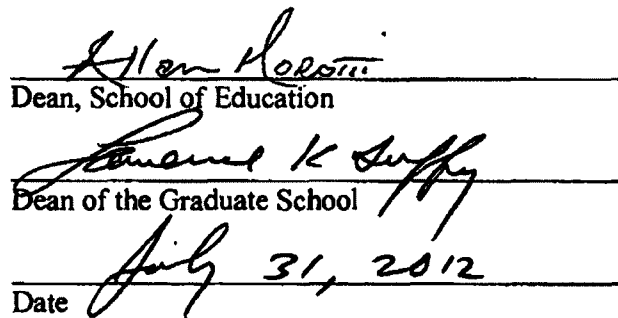 Allan Morotti
Dean, School of Education
Lawrence K Duffy
Dean of the Graduate School
July 31, 2012
Date